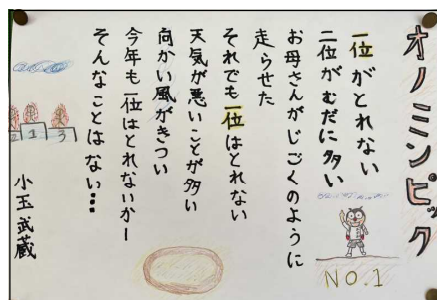 オノミンピック
一位がとれない
二位がむだに多い
お母さんがじごくのように
走らせた
それでも一位はとれない
天気が悪いことが多い
向かい風がきつい
今年も一位はとれないかー
そんなことはない…
小玉武蔵
NO.1
2 1 3